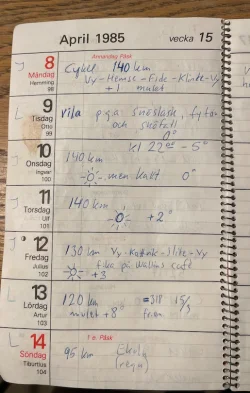 April 1985 vecka 15
Annandag Påsk
8 Cykel 140 km
Måndag Vy-Hemse-Fide-Klinte-Vy
Hemming +1 mulet
98
L 9 vila p.g.a snöslask,
Tisdag och snöfall
Otto 0°
99 kl 22⁰⁰ -5°
10 140 km
Onsdag men kallt 0°
Ingvar
100
11 140 km
Torsdag +2°
Ulf
101
12 130 km Vy-Slite-Vy
Fredag fika på café
Julius +3
102
13 120 km
Lördag mulet +8°
Artur
103
1 e. Påsk
L 14 95 km
Söndag
Tiburtius
104